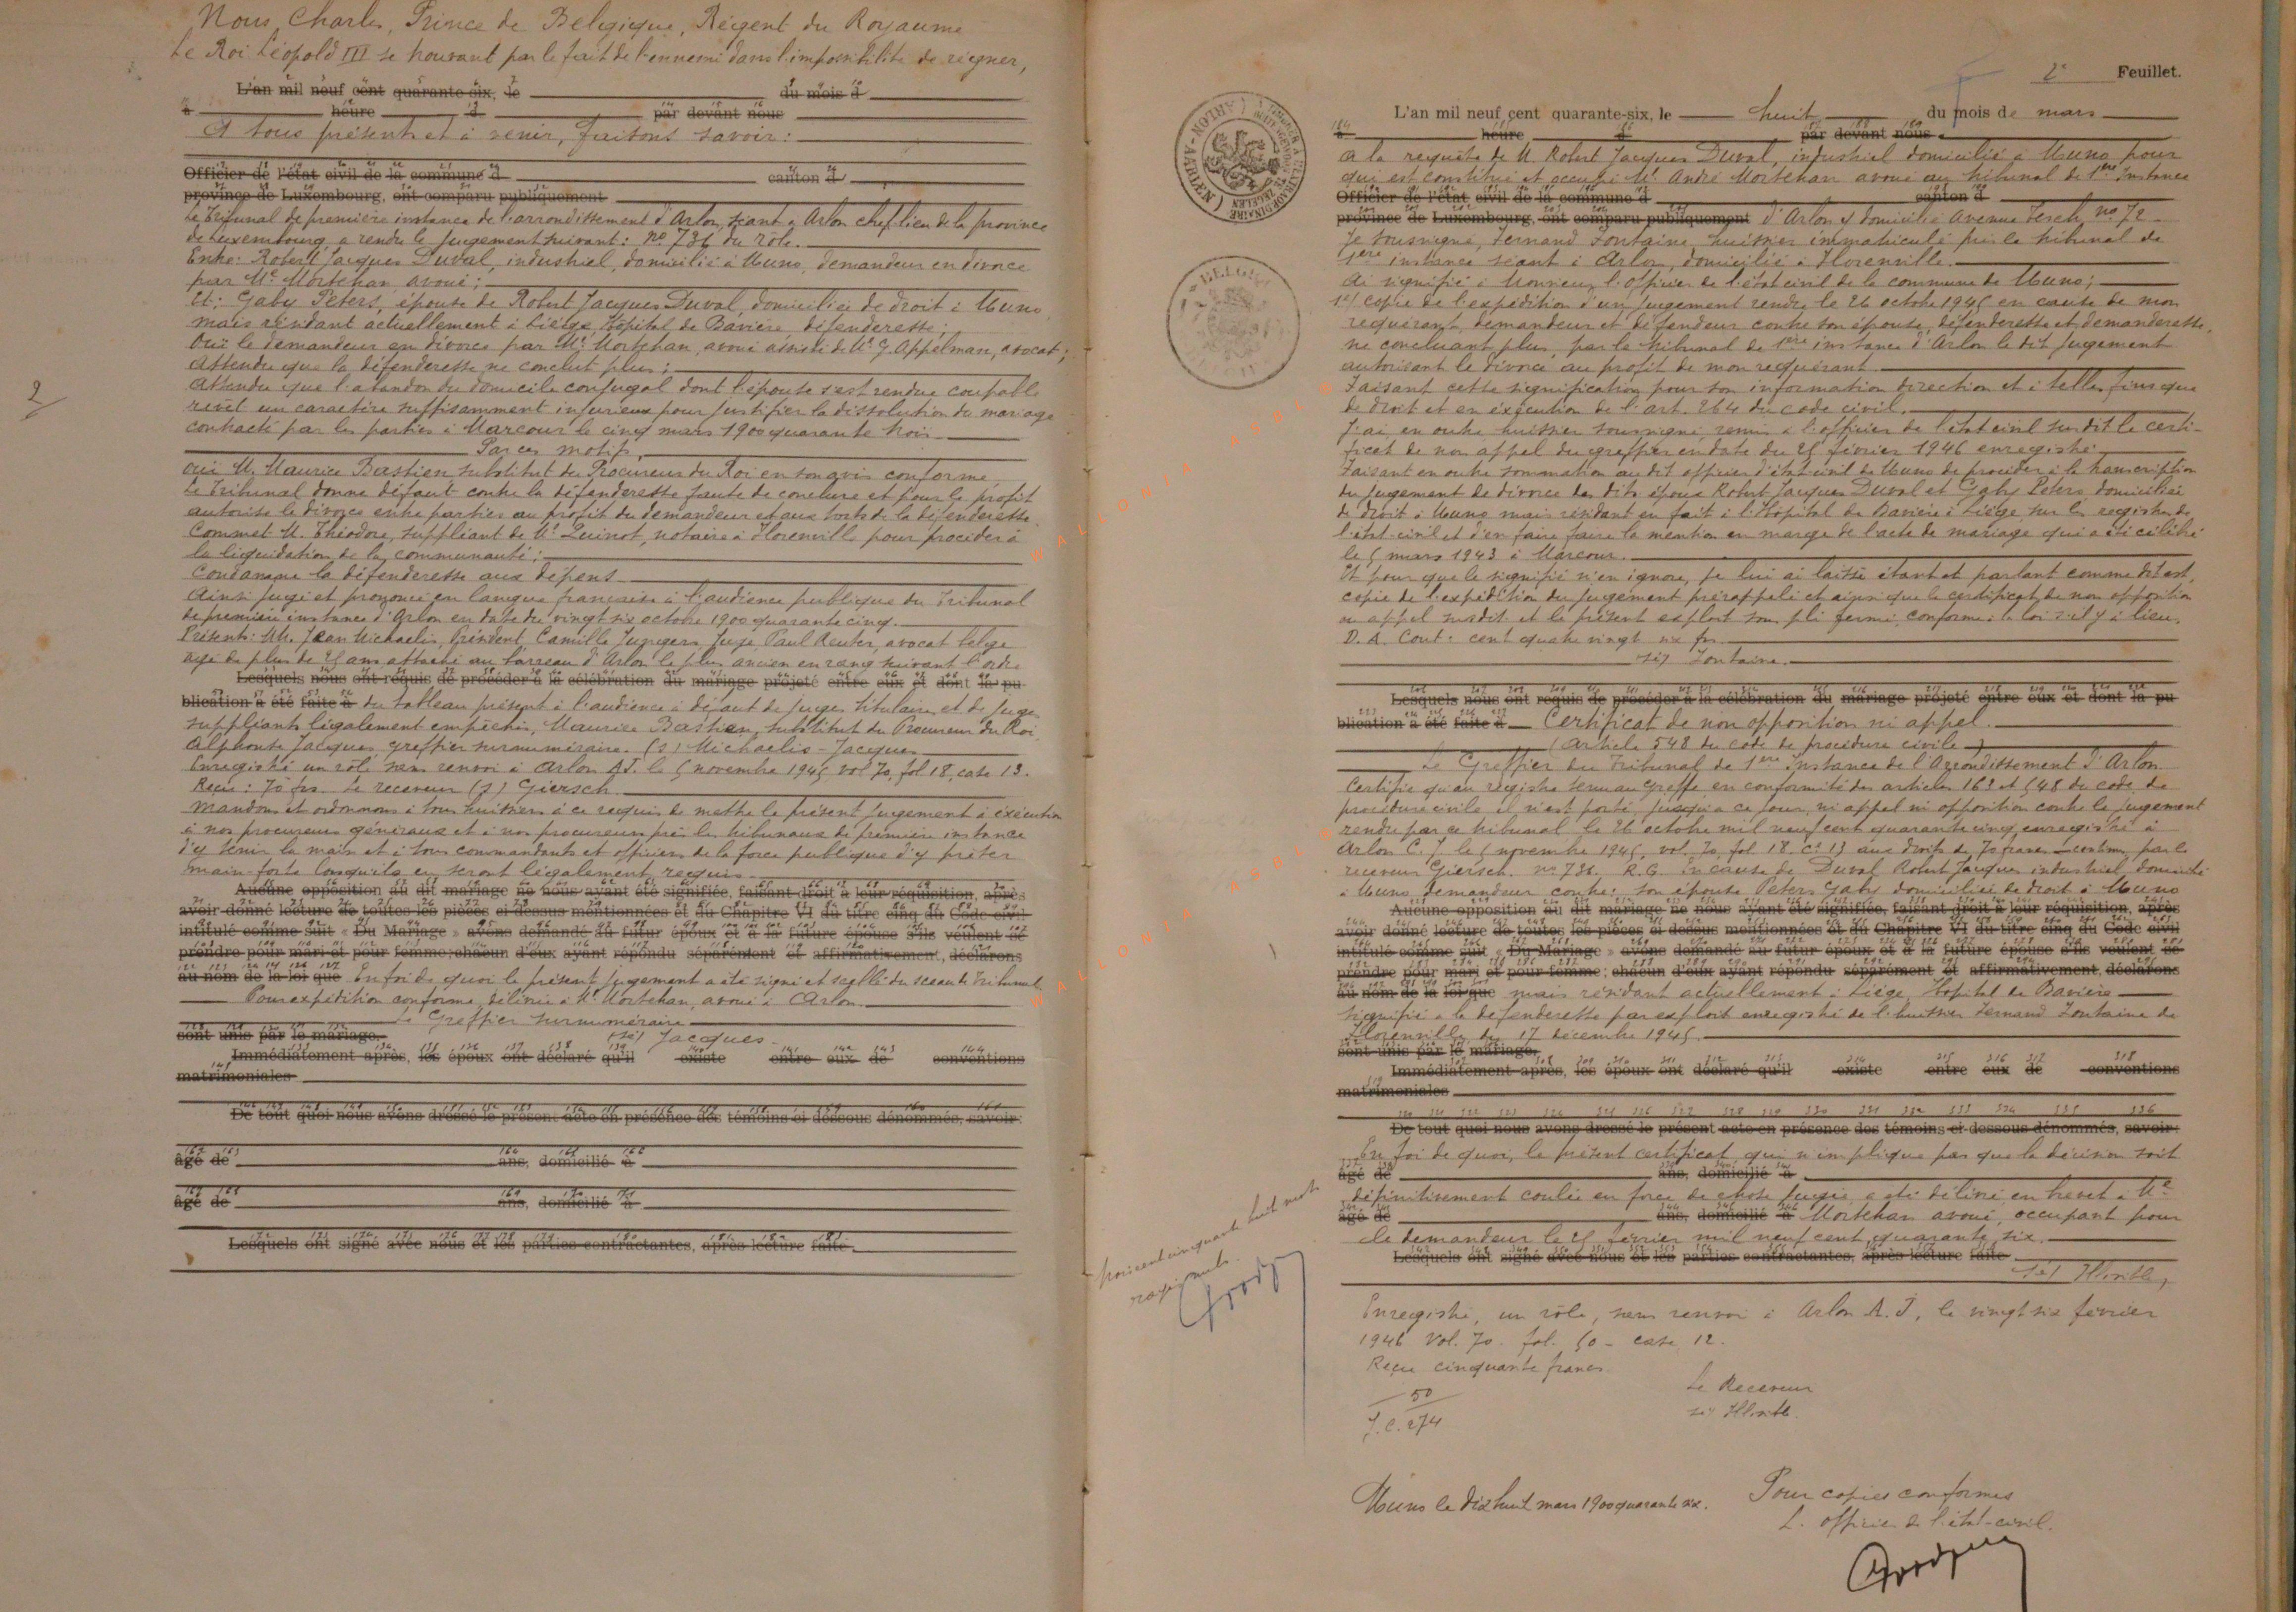 Nous, Charles, Prince de Belgique, Régent du Royaume
Le Roi Léopold III se trouvant par le fait de l'ennemi dans l'impossibilité de régner,
L'an mil neuf cent quarante-six, le du mois d
à heure d par devant nous
A tous présents et à venir, faisons savoir :
Officier de l'état civil de la commune d canton d
province de Luxembourg, ont comparu publiquement
Le Tribunal de première instance de l'arrondissement d'Arlon, séant à Arlon chef-lieu de la province
de Luxembourg a rendu le jugement suivant : no 736 du rôle.
Entre : Robert Jacques Duval, industriel, domicilié à Muno, demandeur en divorce
par Me Mortehan, avoué ;
Et : Gaby Peters, épouse de Robert Jacques Duval, domiciliée de droit à Muno
mais résidant actuellement à Liége, Hôpital de Bavière, défenderesse ;
Ouï le demandeur en divorce par Me Mortehan, avoué assisté de Me J. Appelman, avocat ;
Attendu que la défenderesse ne conclut plus ;
Attendu que l'abandon du domicile conjugal dont l'épouse s'est rendue coupable
revêt un caractère suffisamment injurieux pour justifier la dissolution du mariage
contracté par les parties à Marcour le cinq mars 1900 quarante trois.
Par ces motifs,
2
Ouï M. Maurice Bastien substitut du Procureur du Roi en son avis conforme
Le Tribunal donne défaut contre la défenderesse faute de conclure et pour le profit
autorise le divorce entre parties au profit du demandeur et aux torts de la défenderesse
Commet M. Théodore, suppliant de Me Quinot, notaire à Florenville pour procéder à
la liquidation de la communauté ;
Condamne la défenderesse aux dépens
Ainsi jugé et prononcé en langue française à l'audience publique du Tribunal
de première instance d'Arlon en date du vingt six octobre 1900 quarante cinq.
Présents : MM. Jean Michaelis, Président, Camille Jungers, Juge, Paul Reuter, avocat belge
âgé de plus de 25 ans attaché au barreau d'Arlon le plus ancien en rang suivant l'ordre
Lesquels nous ont requis de procéder à la célébration du mariage projeté entre eux et dont la pu-
blication a été faite à du tableau présent à l'audience à défaut de juges titulaires et de juges
suppléants légalement empêchés, Maurice Bastien, substitut du Procureur du Roi
Alphonse Jacques, greffier surnuméraire. (s) Michaelis - Jacques
Enregistré un rôle sans renvoi à Arlon AJ. le 5 novembre 1945 vol 70, fol 18, case 13.
Reçu : 70 frs Le receveur (s) Giersch.
Mandons et ordonnons à tous huissiers à ce requis de mettre le présent jugement à exécution
à nos procureurs généraux et à nos procureurs près les tribunaux de première instance
d'y tenir la main et à tous commandants et officiers de la force publique d'y prêter
main-forte lorsqu'ils en seront légalement requis
Aucune opposition au dit mariage ne nous ayant été signifiée, faisant droit à leur réquisition, après
avoir donné lecture de toutes les pièces ci-dessus mentionnées et du Chapitre VI du titre cinq du Code civil
intitulé comme suit « Du Mariage » avons demandé au futur époux et à la future épouse s'ils veulent se
prendre pour mari et pour femme ; chacun d'eux ayant répondu séparément et affirmativement, déclarons
au nom de la loi que En foi de quoi le présent jugement a été signé et scellé du sceau du Tribunal
Pour expédition conforme, délivrée à Me Mortehan, avoué à Arlon.
Le Greffier surnuméraire
sont unis par le mariage. (sé) Jacques.
Immédiatement après, les époux ont déclaré qu'il existe entre eux de conventions
matrimoniales
De tout quoi nous avons dressé le présent acte en présence des témoins ci dessous dénommés, savoir :
âgé de ans, domicilié à
âgé de ans, domicilié à
Lesquels ont signé avec nous et les parties contractantes, après lecture faite.
2e Feuillet.
L'an mil neuf cent quarante-six, le huit du mois de mars
à heure d par devant nous
A la requête de M. Robert Jacques Duval, industriel domicilié à Muno, pour
qui est constitué et occupe Me André Mortehan avoué au tribunal de 1ère Instance
Officier de l'état civil de la commune d canton d
province de Luxembourg, ont comparu publiquement d'Arlon y domicilié Avenue Tesch, no 72
Je soussigné, Fernand Fontaine, huissier immatriculé près le tribunal de
1ère instance séant à Arlon, domicilié à Florenville.
Ai signifié à Monsieur l'officier de l'état civil de la commune de Muno ;
1o/ copie de l'expédition d'un jugement rendu le 26 octobre 1945 en cause de mon
requérant, demandeur et défendeur contre son épouse, défenderesse et demanderesse,
ne concluant plus, par le tribunal de 1ère instance d'Arlon le dit jugement
autorisant le divorce au profit de mon requérant.
Faisant cette signification pour son information direction et à telles fins que
de droit et en exécution de l'art. 264 du code civil.
J'ai, en outre huissier soussigné, remis à l'officier de l'état civil susdit le certi-
ficat de non appel du greffier en date du 25 février 1946 enregistré
Faisant en outre sommation au dit officier d'état civil de Muno de procéder à la transcription
du jugement de divorce des dits époux Robert Jacques Duval et Gaby Peters domiciliée
de droit à Muno mais résidant en fait à l'Hôpital de Bavière à Liége sur les registres de
l'état-civil et d'en faire faire la mention en marge de l'acte de mariage qui a été célébré
le 5 mars 1943 à Marcour.
Et pour que le signifié n'en ignore, je lui ai laissé étant et parlant comme dit est,
copie de l'expédition du jugement prérappelé et ainsi que le certificat de non opposition
ni appel susdit et le présent exploit sous pli fermé, conforme à la loi s'il y a lieu.
D. A. Cout : cent quatre vingt six frs.
(sé) Fontaine.
Lesquels nous ont requis de procéder à la célébration du mariage projeté entre eux et dont la pu
blication a été faite à Certificat de non opposition ni appel.
(Article 548 du code de procédure civile)
Le Greffier du Tribunal de 1ère Instance de l'Arrondissement d'Arlon
Certifie qu'au registre tenu au greffe, en conformité des articles 163 et 548 du code de
procédure civile il n'est porté jusqu'à ce jour, ni appel ni opposition contre le jugement
rendu par ce tribunal le 26 octobre mil neuf cent quarante cinq, enregistré à
Arlon C. J. le 5 novembre 1945, vol. 70, fol 18. Ce 13 aux droits de 70 francs par le
receveur Giersch. no 736. R. G. En cause de Duval Robert Jacques industriel, domicilié
à Muno demandeur contre : son épouse Peters Gaby domiciliée de droit à Muno
Aucune opposition au dit mariage ne nous ayant été signifiée, faisant droit à leur réquisition, après
avoir donné lecture de toutes les pièces ci dessus mentionnées et du Chapitre VI du titre cinq du Code civil
intitulé comme suit « Du Mariage » avons demandé au futur époux et à la future épouse s'ils veulent se
prendre pour mari et pour femme ; chacun d'eux ayant répondu séparément et affirmativement, déclarons
au nom de la loi que mais résidant actuellement à Liége, Hôpital de Bavière
signifié à la défenderesse par exploit enregistré de l'huissier Fernand Fontaine de
Florenville, du 17 décembre 1945.
sont unis par le mariage.
Immédiatement après, les époux ont déclaré qu'il existe entre eux de conventions
matrimoniales
De tout quoi nous avons dressé le présent acte en présence des témoins ci-dessous dénommés, savoir :
En foi de quoi, le présent certificat, qui n'implique pas que la décision soit
âgé de ans, domicilié à
définitivement coulée en force de chose jugée, a été délivré en brevet à Me
âgé de ans, domicilié à Mortehan avoué, occupant pour
le demandeur le 25 février mil neuf cent quarante six.
Lesquels ont signé avec nous et les parties contractantes, après lecture faite.
trois cent cinquante huit mots
rayés nuls.
Enregistré, un rôle, sans renvoi à Arlon A. J, le vingt six février
1946 Vol. 70. fol. 50 - case 12.
Reçu cinquante francs
Le Receveur
50
J. C. 274
Muno le dix huit mars 1900 quarante six.
Pour copies conformes
L'officier de l'état-civil.
WALLONIA ASBL
WALLONIA ASBL